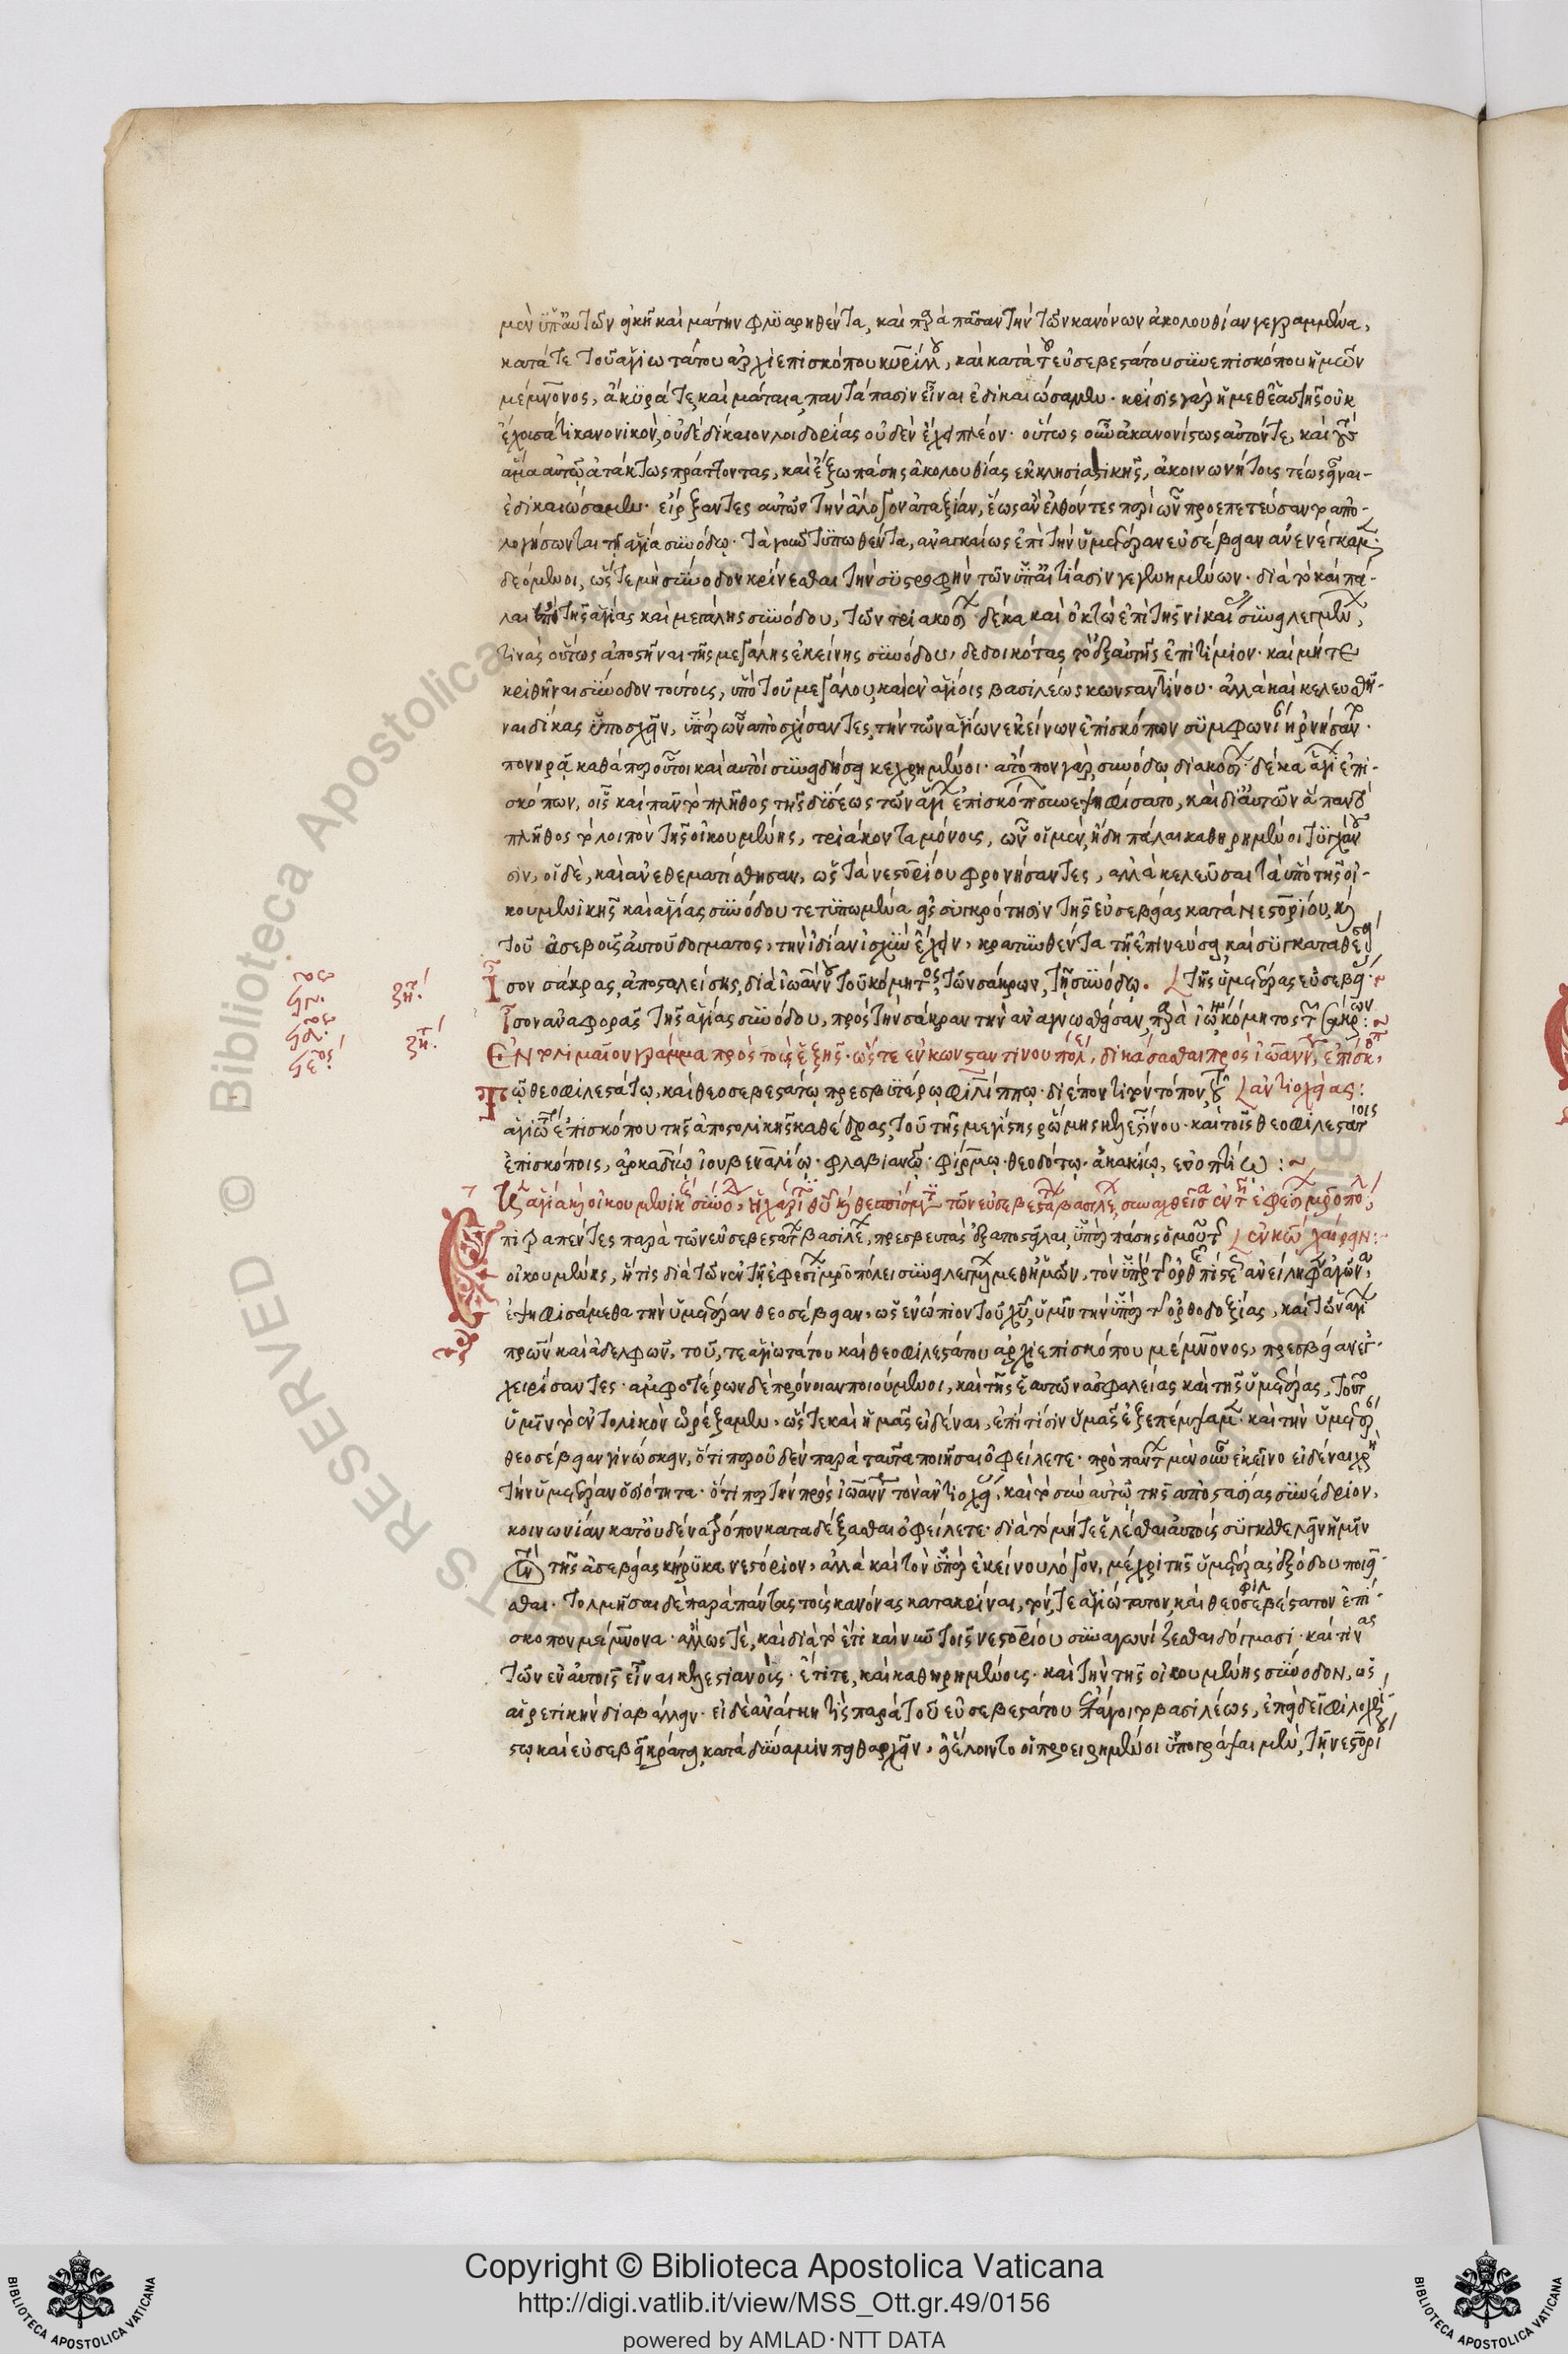 μὲν ὑπ' αὐτῶν εἰκῆ καὶ μάτην φλυαρηθέντα, καὶ παρὰ πᾶσαν τὴν τῶν κανόνων ἀκολουθίαν γεγραμμένα,
κατά τε τοῦ ἁγιωτάτου ἀρχιεπισκόπου κυρίλλου, καὶ κατὰ τοῦ εὐσεβεστάτου συνεπισκόπου ἡμῶν
μέμνονος, ἄκυρά τε καὶ μάταια παντάπασιν εἶναι ἐδικαιώσαμεν.
ἔχουσά τι κανονικὸν, οὐδὲ δίκαιον λοιδορίας οὐδὲν ἔχει πλέον. οὕτως οὖν ἀκανονίστως αὐτόν τε, καὶ τοὺς
ἅμα αὐτῷ ἀτάκτως πράττοντας, καὶ ἔξω πάσης ἀκολουθίας ἐκκλησιαστικῆς, ἀκοινωνήτους τέως εἶναι
ἐδικαιώσαμεν. εἴρξαντες αὐτῶν τὴν ἄλογον ἀταξίαν, ἕως ἂν ἐλθόντες περὶ ὧν προεπετεύσαντο ἀπο-
λογήσωνται τῇ ἁγίᾳ συνόδῳ. τὰ γοῦν τυπωθέντα, ἀναγκαίως ἐπὶ τὴν ὑμετέραν εὐσέβειαν ἀνενέγκαμεν.
δεόμενοι, ὥστε μὴ σύνοδον κρίνεσθαι τὴν συστροφὴν τῶν ὑπ' αἰτίασιν γεγενημένων. διὰ τὸ καὶ πά-
λαι ὑπὸ τῆς ἁγίας καὶ μεγάλης συνόδου, τῶν τριακοσίων δέκα καὶ ὀκτὼ ἐπὶ τῆς νικαίας συνειλεγμένων,
τινὰς οὕτως ἀποστῆναι τῆς μεγάλης ἐκείνης συνόδου, δεδοικότας τὸ ἐξ αὐτῆς ἐπιτίμιον. καὶ μήτε
κριθῆναι σύνοδον τούτους, ὑπὸ τοῦ μεγάλου, καὶ ἐν ἁγίοις βασιλέως κωνσταντίνου. ἀλλὰ καὶ κελευσθῆ-
ναι δίκας ὑποσχεῖν, ὑπὲρ ὧν ἀποσχίσαντες, τὴν τῶν ἁγίων ἐκείνων ἐπισκόπων συμφωνίαν ἠρνήσαντο.
πονηρᾷ καθάπερ οὗτοι καὶ αὐτοὶ συνειδήσει κεχρημένοι. ἄτοπον γὰρ, συνόδῳ διακοσίων δέκα ἁγίων ἐπι-
σκόπων, οἷς καὶ πᾶν τὸ πλῆθος τῆς δύσεως τῶν ἁγίων ἐπισκόπων συνεψηφίσατο, καὶ δι' αὐτῶν ἅπαν τὸ
πλῆθος τὸ λοιπὸν τῆς οἰκουμένης, τριάκοντα μόνους, ὧν οἱ μὲν, ἤδη πάλαι καθῃρημένοι τυγχάνου
σιν, οἱ δὲ, καὶ ἀνεθεματίσθησαν, ὡς τὰ νεστορίου φρονήσαντες, ἀλλὰ κελεῦσαι τὰ ὑπὸ τῆς οἰ-
κουμενικῆς καὶ ἁγίας συνόδου τετυπωμένα εἰς συγκρότησιν τῆς εὐσεβείας κατὰ Νεστορίου, καὶ
τοῦ ἀσεβοῦς αὐτοῦ δόγματος, τὴν ἰδίαν ἰσχὺν ἔχειν, κρατυνθέντα τῇ ἐπινεύσει, καὶ συγκαταθέσει
Ἴσον σάκρας, ἀποσταλείσης, διὰ ἰωάννου τοῦ κόμητος, τῶν σάκρων, τῇ συνόδῳ. τῆς ὑμετέρας εὐσεβείας
Ἴσον ἀναφορᾶς τῆς ἁγίας συνόδου, πρὸς τὴν σάκραν τὴν ἀναγνωσθεῖσαν, παρὰ ἰωάννου κόμητος τῶν σακρῶν:
ΕΝτολιμαῖον γράμμα πρὸς τοὺς ἑξῆς. ὥστε ἐν κωνσταντινουπόλει, δικάσασθαι πρὸς ἰωάννην ἐπίσκοπον
Τῷ θεοφιλεστάτῳ, καὶ θεοσεβεστάτῳ πρεσβυτέρῳ φιλίππῳ. διέποντι τὸν τόπον, τοῦ ἀντιοχείας:
ἁγιωτάτου ἐπισκόπου τῆς ἀποστολικῆς καθέδρας, τοῦ τῆς μεγίστης ῥώμης κελεστίνου. καὶ τοῖς θεοφιλεστάτοις
ἐπισκόποις, ἀρκαδίῳ ἰουβεναλίῳ. φλαβιανῷ. φίρμῳ. θεοδότῳ. ἀκακίῳ, εὐοπτίῳ:
Ἡ ἁγία καὶ οἰκουμενικὴ σύνοδος, ἡ χάριτι θεοῦ καὶ θεσπίσματι τῶν εὐσεβεστάτων βασιλέων, συναχθεῖσα ἐν τῇ ἐφεσίων μητροπόλει
πιφαπέντες παρὰ τῶν εὐσεβεστάτων βασιλέων, πρεσβευτὰς ἐξαποστεῖλαι, ὑπὲρ πάσης ὁμοῦ τῆς ἐν κω χαίρειν:
οἰκουμένης, ἥτις διὰ τῶν ἐν τῇ ἐφεσίων μητροπόλει συνειλεγμένων μεθ' ἡμῶν, τὸν ὑπὲρ τῆς ὀρθῆς πίστεως ἀνείληφεν ἀγῶνα,
ἐψηφισάμεθα τὴν ὑμετέραν θεοσέβειαν, ὡς ἐνώπιον τοῦ χυ, ὑμῖν τὴν ὑπὲρ τῆς ὀρθοδοξίας, καὶ τῶν ἁγίων
πρων καὶ ἀδελφῶν, τοῦ, τε ἁγιωτάτου καὶ θεοφιλεστάτου ἀρχιεπισκόπου μέμνονος, πρεσβείαν ἐγ-
χειρίσαντες. ἀμφοτέρων δὲ πρόνοιαν ποιούμενοι, καὶ τῆς ἑαυτῶν ἀσφαλείας καὶ τῆς ὑμετέρας, τοῦτο
ὑμῖν τὸ ἐντολικὸν ὠρέξαμεν, ὥστε καὶ ἡμᾶς εἰδέναι, ἐπὶ τίσιν ὑμᾶς ἐξεπέμψαμεν. καὶ τὴν ὑμετέραν
θεοσέβειαν γινώσκειν, ὅτι περ οὐδὲν παρὰ ταῦτα ποιῆσαι ὀφείλετε. πρὸ πάντων μὲν οὖν ἐκεῖνο εἰδέναι χρὴ
τὴν ὑμετέραν ὁσιότητα. ὅτι περ τὴν πρὸς ἰωάννην τὸν ἀντιοχείας, καὶ τὸ σὺν αὐτῷ τῆς ἀποστασίας συνέδριον,
κοινωνίαν κατ' οὐδένα τρόπον καταδέξασθαι ὀφείλετε. διὰ τὸ μήτε ἑλέσθαι αὐτοὺς συγκαθελεῖν ἡμῖν
τὸν τῆς ἀσεβείας κήρυκα νεστόριον, ἀλλὰ καὶ τὸν ὑπὲρ ἐκείνου λόγον, μέχρι τῆς ὑμετέρας ἐξόδου ποιεῖ-
σθαι. τολμῆσαι δὲ παρὰ πάντας τοὺς κανόνας κατακρῖναι, τόν, τε ἁγιώτατον, καὶ θεοσεβέστατον ἐπί-
σκοπον μέμνονα. ἄλλως τε, καὶ διὰ τὸ ἔτι καὶ νῦν τοῖς νεστορίου συναγωνίζεσθαι δόγμασι. καὶ τινὰς
τῶν ἐν αὐτοῖς εἶναι κελεστιανούς. ἔτι τε, καὶ καθῃρημένους. καὶ τὴν τῆς οἰκουμένης σύνοδον, ὡς
αἱρετικὴν διαβάλλειν. εἰ δὲ ἀνάγκη τις παρὰ τοῦ εὐσεβεστάτου ἐπάγοιτο βασιλέως, ἐπειδὴ δεῖ φιλοχρί-
στῳ καὶ εὐσεβεῖ κράτει κατὰ δύναμιν πειθαρχεῖν, εἰ ἕλοιντο οἱ προειρημένοι ὑπογράψαι μὲν, τῇ νεστορίου
Copyright © Biblioteca Apostolica Vaticana
http://digi.vatlib.it/view/MSS_Ott.gr.49/0156
powered by AMLAD·NTT DATA